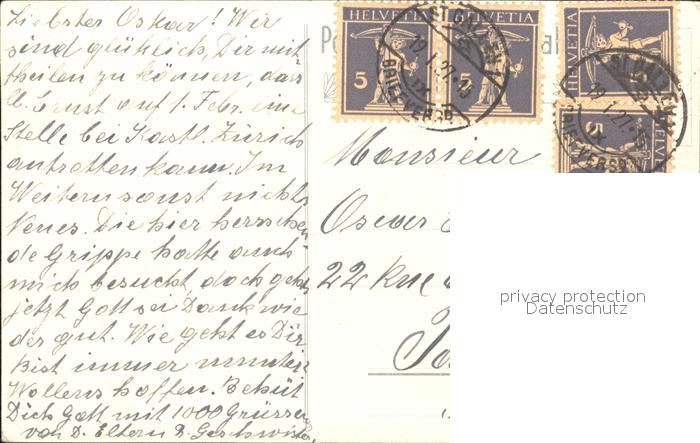 Liebster Oskar! Wir
sind glücklich, Dir mit
theilen zu können, das
Ernst auf 1. Febr. eine
Stelle bei Kastl. Zürich
antretten kann. Im
Weitern sonst nichts
Neues. Die hier herrschen-
de Grippe hatte auch
mich besucht, doch geht
jetzt Gott sei Dank wie
der gut. Wie geht es Dir
Bist immer munter
Wollens hoffen. Behüt
Dich Gott mit 1000 Grüssen
von D. Eltern & Geschwister.
HELVETIA
HELVETIA
HELVETIA
5
5
5
ST. GALLEN 1
19. I. 21
IX
BRIEFVERSD.
19. I. 21
IX
BRIEFVERSD.
Monsieur
Oscar
22 Rue
privacy protection
Datenschutz